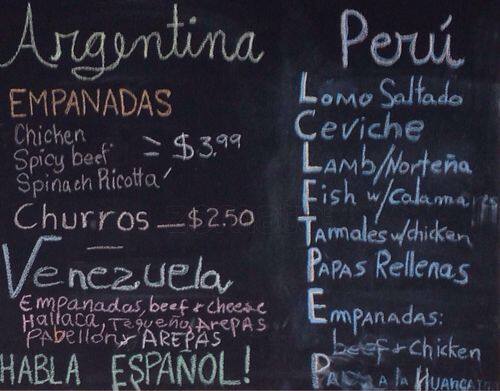 Argentina
EMPANADAS
Chicken
Spicy beef
Spinach Ricotta
= $3.99
Churros — $2.50
Venezuela
Empanadas, beef + cheese
Hallaca, Tequeño, AREPAS
PABELLON, AREPAS
HABLA ESPAÑOL!
Perú
Lomo Saltado
Ceviche
LAMB/Norteña
Fish w/Calamares
TAmales w/chicken
PAPAS RelleNAS
Empanadas:
beef + Chicken
a la